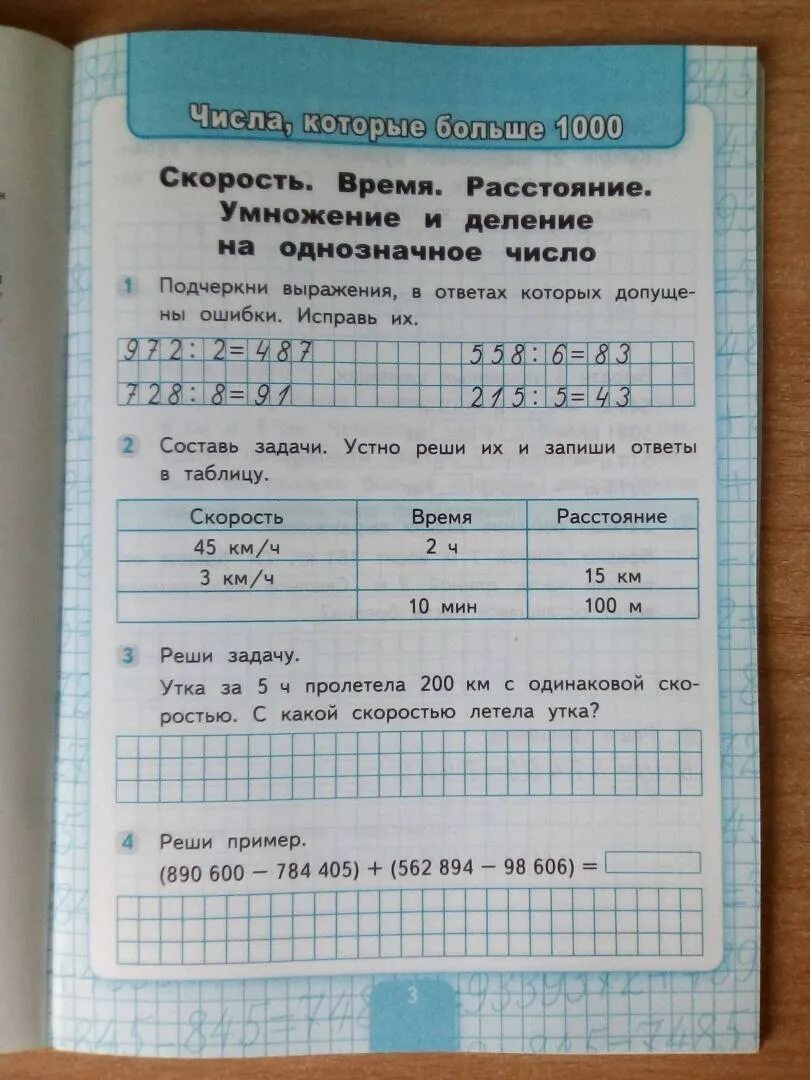 Числа, которые больше 1000
Скорость. Время. Расстояние.
Умножение и деление
на однозначное число
1 Подчеркни выражения, в ответах которых допуще-
ны ошибки. Исправь их.
972:2=487 558:6=83
728:8=91 215:5=43
2 Составь задачи. Устно реши их и запиши ответы
в таблицу.
Скорость Время Расстояние
45 км/ч 2 ч
3 км/ч 15 км
10 мин 100 м
3 Реши задачу.
Утка за 5 ч пролетела 200 км с одинаковой ско-
ростью. С какой скоростью летела утка?
4 Реши пример.
(890 600 − 784 405) + (562 894 − 98 606) =
3